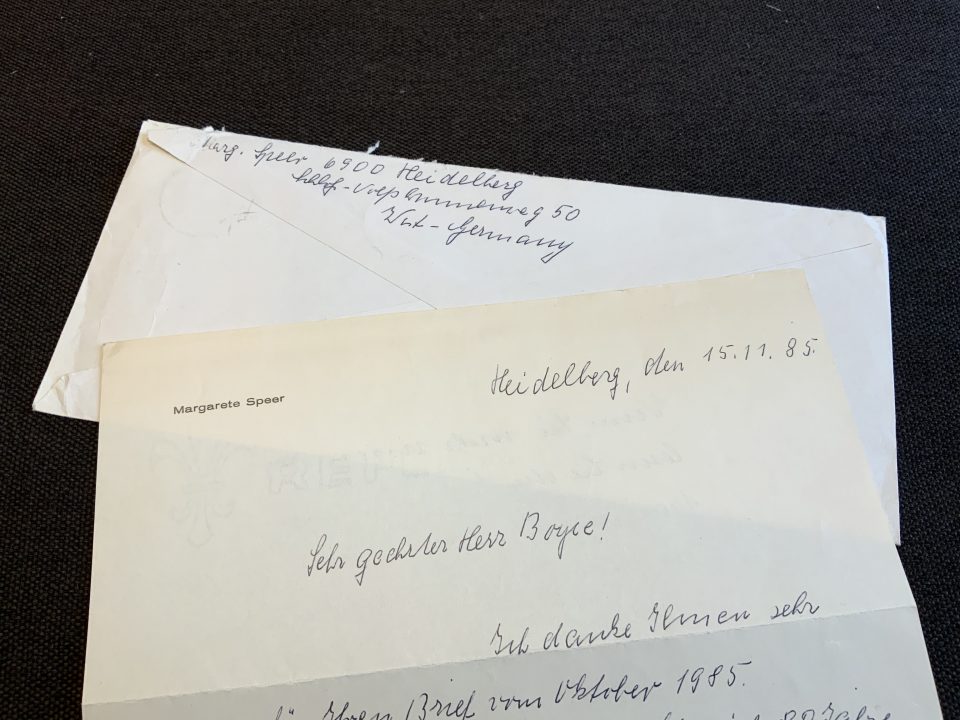 Marg. Speer 6900 Heidelberg
50
West-Germany
Margarete Speer
Heidelberg, den 15.11.85.
Sehr geehrter Herr Boyce!
Ich danke Ihnen sehr
Ihren Brief vom Oktober 1985.
80 Jahre